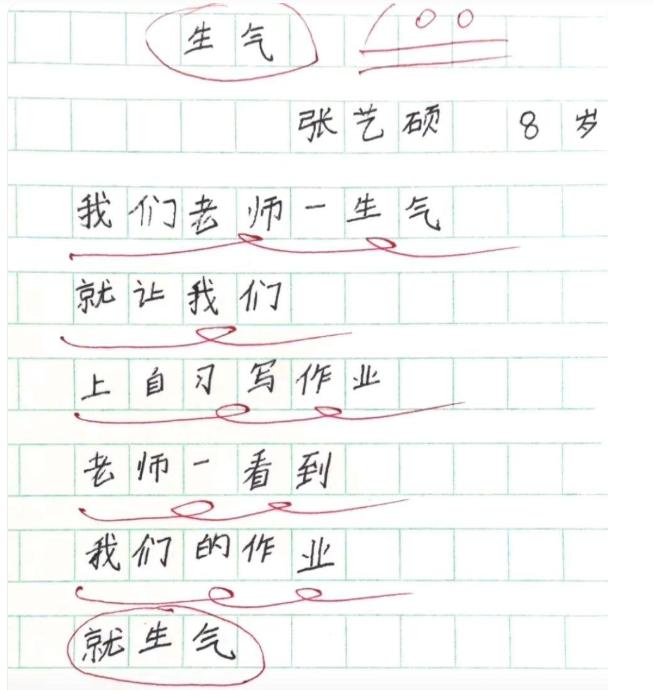 生气
张艺硕 8岁
我们老师一生气
就让我们
上自习写作业
老师一看到
我们的作业
就生气